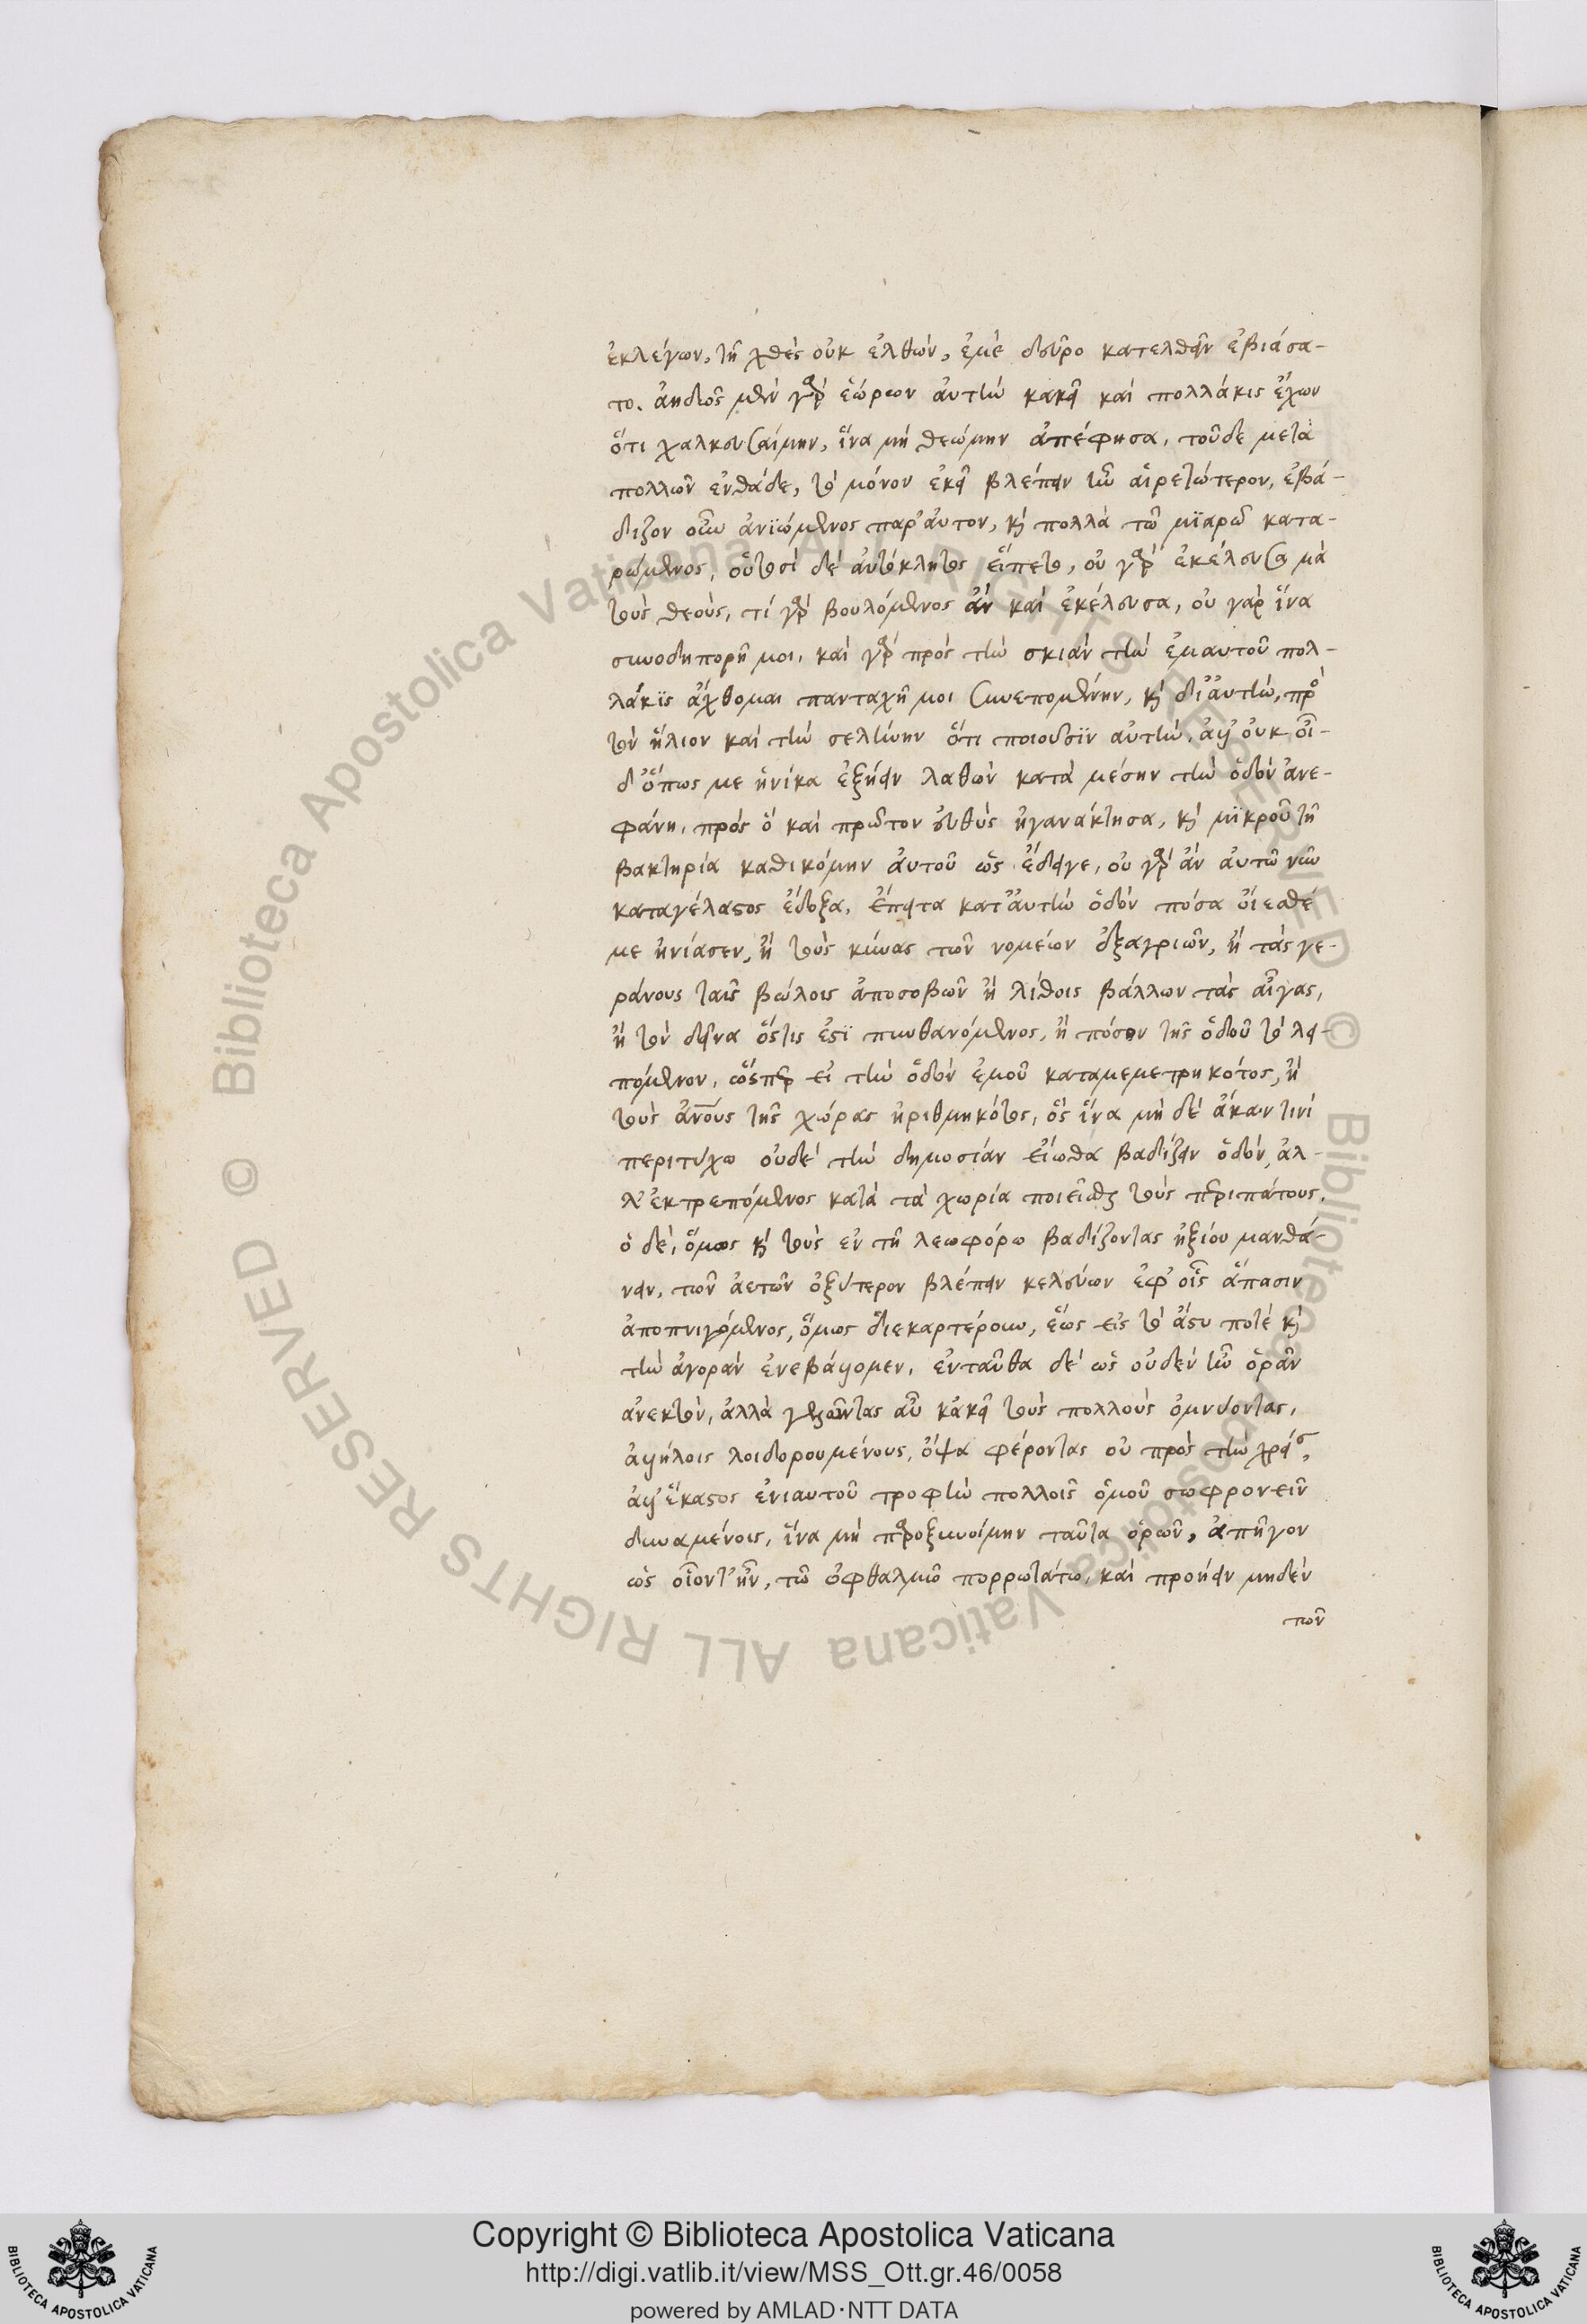 ἐκλέγων, τῆ χθὲς οὐκ ἐλθὼν, ἐμὲ δεῦρο κατελθεῖν ἐβιάσα-
το. ἀηδῶς μὲν γὰρ ἑώρων αὐτὴν κακεῖ καὶ πολλάκις ἔχων
ὅτι χαλκευσαίμην, ἵνα μὴ θεώμην ἀπέφησα, τοῦδε μετὰ
πολλῶν ἐνθάδε, τὸ μόνον ἐκεῖ βλέπειν ἦν αἱρετώτερον, ἐβά-
διζον οὖν ἀνιώμενος παρ' αὐτὸν, καὶ πολλὰ τῶ μιαρῶ κατα-
ρώμενος, οὑτοσὶ δὲ αὐτόκλητος εἵπετο, οὐ γὰρ ἐκέλευσα μὰ
τοὺς θεοὺς, τί γὰρ βουλόμενος ἂν καὶ ἐκέλευσα, οὐ γὰρ ἵνα
συνοδηπορῆ μοι, καὶ γὰρ πρὸς τὴν σκιὰν τὴν ἐμαυτοῦ πολ-
λάκις ἄχθομαι πανταχῆ μοι συνεπομένην, καὶ δι' αὐτὴν, πρὸς
τὸν ἥλιον καὶ τὴν σελήνην ὅτι ποιοῦσιν αὐτὴν, ἀλλ' οὐκ οἶ-
δ' ὅπως με ἡνίκα ἐξήειν λαθὼν κατὰ μέσην τὴν ὁδὸν ἀνε-
φάνη, πρὸς ὃ καὶ πρῶτον εὐθὺς ἠγανάκτησα, καὶ μικροῦ τῆ
βακτηρία καθικόμην αὐτοῦ ὡς ἔδει γε, οὐ γὰρ ἂν αὐτῶ νῦν
καταγέλαστος ἔδοξα, ἔπειτα κατ' αὐτὴν ὁδὸν πόσα οἴεσθέ
με ἠνίασεν, ἢ τοὺς κύνας τῶν νομείων ἐξαγριῶν, ἢ τὰς γε-
ράνους ταῖς βώλοις ἀποσοβῶν ἢ λίθοις βάλλων τὰς αἶγας,
ἢ τὸν δεῖνα ὅστις ἐστὶ πυνθανόμενος, ἢ πόσον τῆς ὁδοῦ τὸ λει-
πόμενον, ὥσπερ εἰ τὴν ὁδὸν ἐμοῦ καταμεμετρηκότος, ἢ
τοὺς ἀνους τῆς χώρας ἠριθμηκότος, ὃς ἵνα μὴ δὲ ἄκων τινὶ
περιτύχω οὐδὲ τὴν δημοσίαν εἴωθα βαδίζειν ὁδὸν, ἀλ-
λ' ἐκτρεπόμενος κατὰ τὰ χωρία ποιεῖσθαι τοὺς περιπάτους.
ὁ δὲ, ὅμως καὶ τοὺς ἐν τῆ λεωφόρω βαδίζοντας ἠξίου μανθά-
νειν, τῶν ἀετῶν ὀξύτερον βλέπειν κελεύων ἐφ' οἷς ἅπασιν
ἀποπνιγόμενος, ὅμως διεκαρτέρουν, ἕως εἰς τὸ ἄστυ ποτὲ καὶ
τὴν ἀγορὰν ἐνεβάλλομεν, ἐνταῦθα δὲ ὡς οὐδὲν ἦν ὁρᾶν
ἀνεκτὸν, ἀλλὰ γελῶντας αὖ κἀκεῖ τοὺς πολλοὺς ὀμνύοντας,
ἀλλήλοις λοιδορουμένους, ὄψα φέροντας οὐ πρὸς τὴν χρείας,
ἀλλ' ἕκαστος ἐνιαυτοῦ τροφὴν πολλοῖς ὁμοῦ σωφρονεῖν
δυναμένοις, ἵνα μὴ παροξυνοίμην ταῦτα ὁρῶν, ἀπῆγον
ὡς οἷον τ' ἦν, τῶ ὀφθαλμῶ πορρωτάτω, καὶ προήειν μηδὲν
πων
Copyright © Biblioteca Apostolica Vaticana
http://digi.vatlib.it/view/MSS_Ott.gr.46/0058
powered by AMLAD·NTT DATA